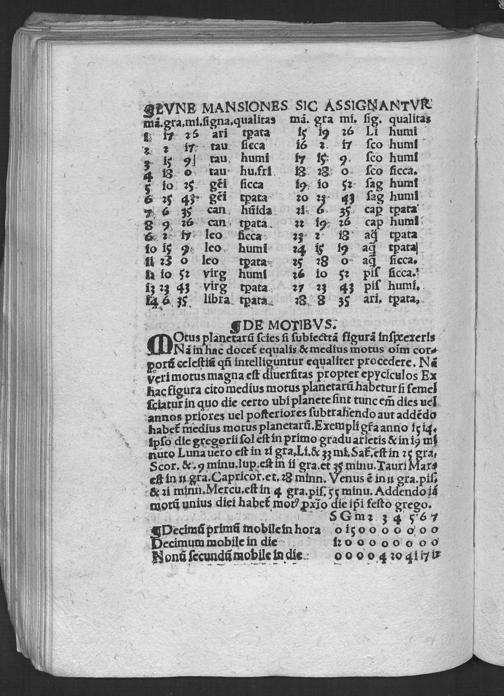 ¶LVNE MANSIONES SIC ASSIGNANTVR
mā.gra.mi.signa.qualitas mā. gra mi. sig. qualitas
1 17 26 ari tpata 15 19 26 Li humi
2 2 17 tau sicca 16 2 17 sco humi
3 15 9 tau humi 17 15 9 sco humi
4 18 0 tau hu.fri 18 28 0 sco sicca.
5 10 25 gēi sicca 19 10 52 sag humi
6 25 43 gēi tpata 20 23 43 sag humi
7 6 35 can hūida 21 6 35 cap tpata
8 9 26 can tpata 22 19 26 cap humi
6 2 17 leo sicca 23 2 18 aq̄ tpata
10 15 9 leo humi 24 15 19 aq̄ tpata
11 28 0 leo tpata 25 28 0 aq̄ sicca.
12 10 52 virg humi 26 10 52 pis sicca.
13 23 43 virg tpata 27 23 43 pis humi.
14 6 35 libra tpata 28 8 35 ari. tpata.
¶DE MOTIBVS.
MOtus planetarū scies si subiectrā figurā inspexeris
Nā in hac docet equalis & medius motus oīm cor-
porū celestiū qn̄ intelliguntur equaliter procedere. Nā
veri motus magna est diuersitas propter epyciculos Ex
hac figura cito medius motus planetarū habetur si semel
sciatur in quo die certo ubi planete sint tunc em̄ dies uel
annos priores uel posteriores subtrahendo aut addēdo
habet medius motus planetarū. Exempli gr̄a anno 1514.
ipso die gregorii sol est in primo gradu arietis & in 19 mi
nuto Luna uero est in 21 gra, Li. & 33 mi. Sat. est in 25 gra,
Scor. & .9 minu. Iup. est in 11 gra. et 35 minu. Tauri Mars
est in 11 gra. Capricor. et. 28 minn. Venus ē in 11 gra. pis.
& 21 minu. Mercu. est in 4 gra. pis. 55 minu. Addendo iā
morū unius diei habet mot9 px̄io die ipi festo grego.
S G m 2 3 4 5 6 7
¶Decimū primū mobile in hora 0 15 0 0 0 0 0 0 0
Decimum mobile in die 12 0 0 0 0 0 0 0 0
Nonū secundū mobile in die 0 0 0 0 4 20 41 17 12